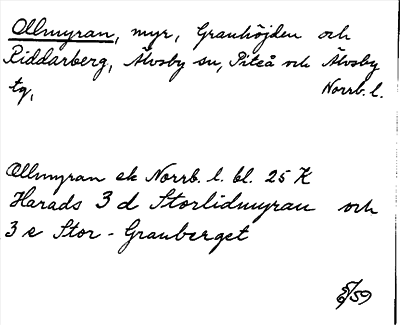 Allmyran, myr, Granhöjden och
Riddarberg, Älvsby sn, Piteå och Älvsby
tg, Norrb. l.
Allmyran ek Norrb. l. bl. 25 K
Harads 3 d Storlidmyran och
3 e Stor-Granberget
5/6 59